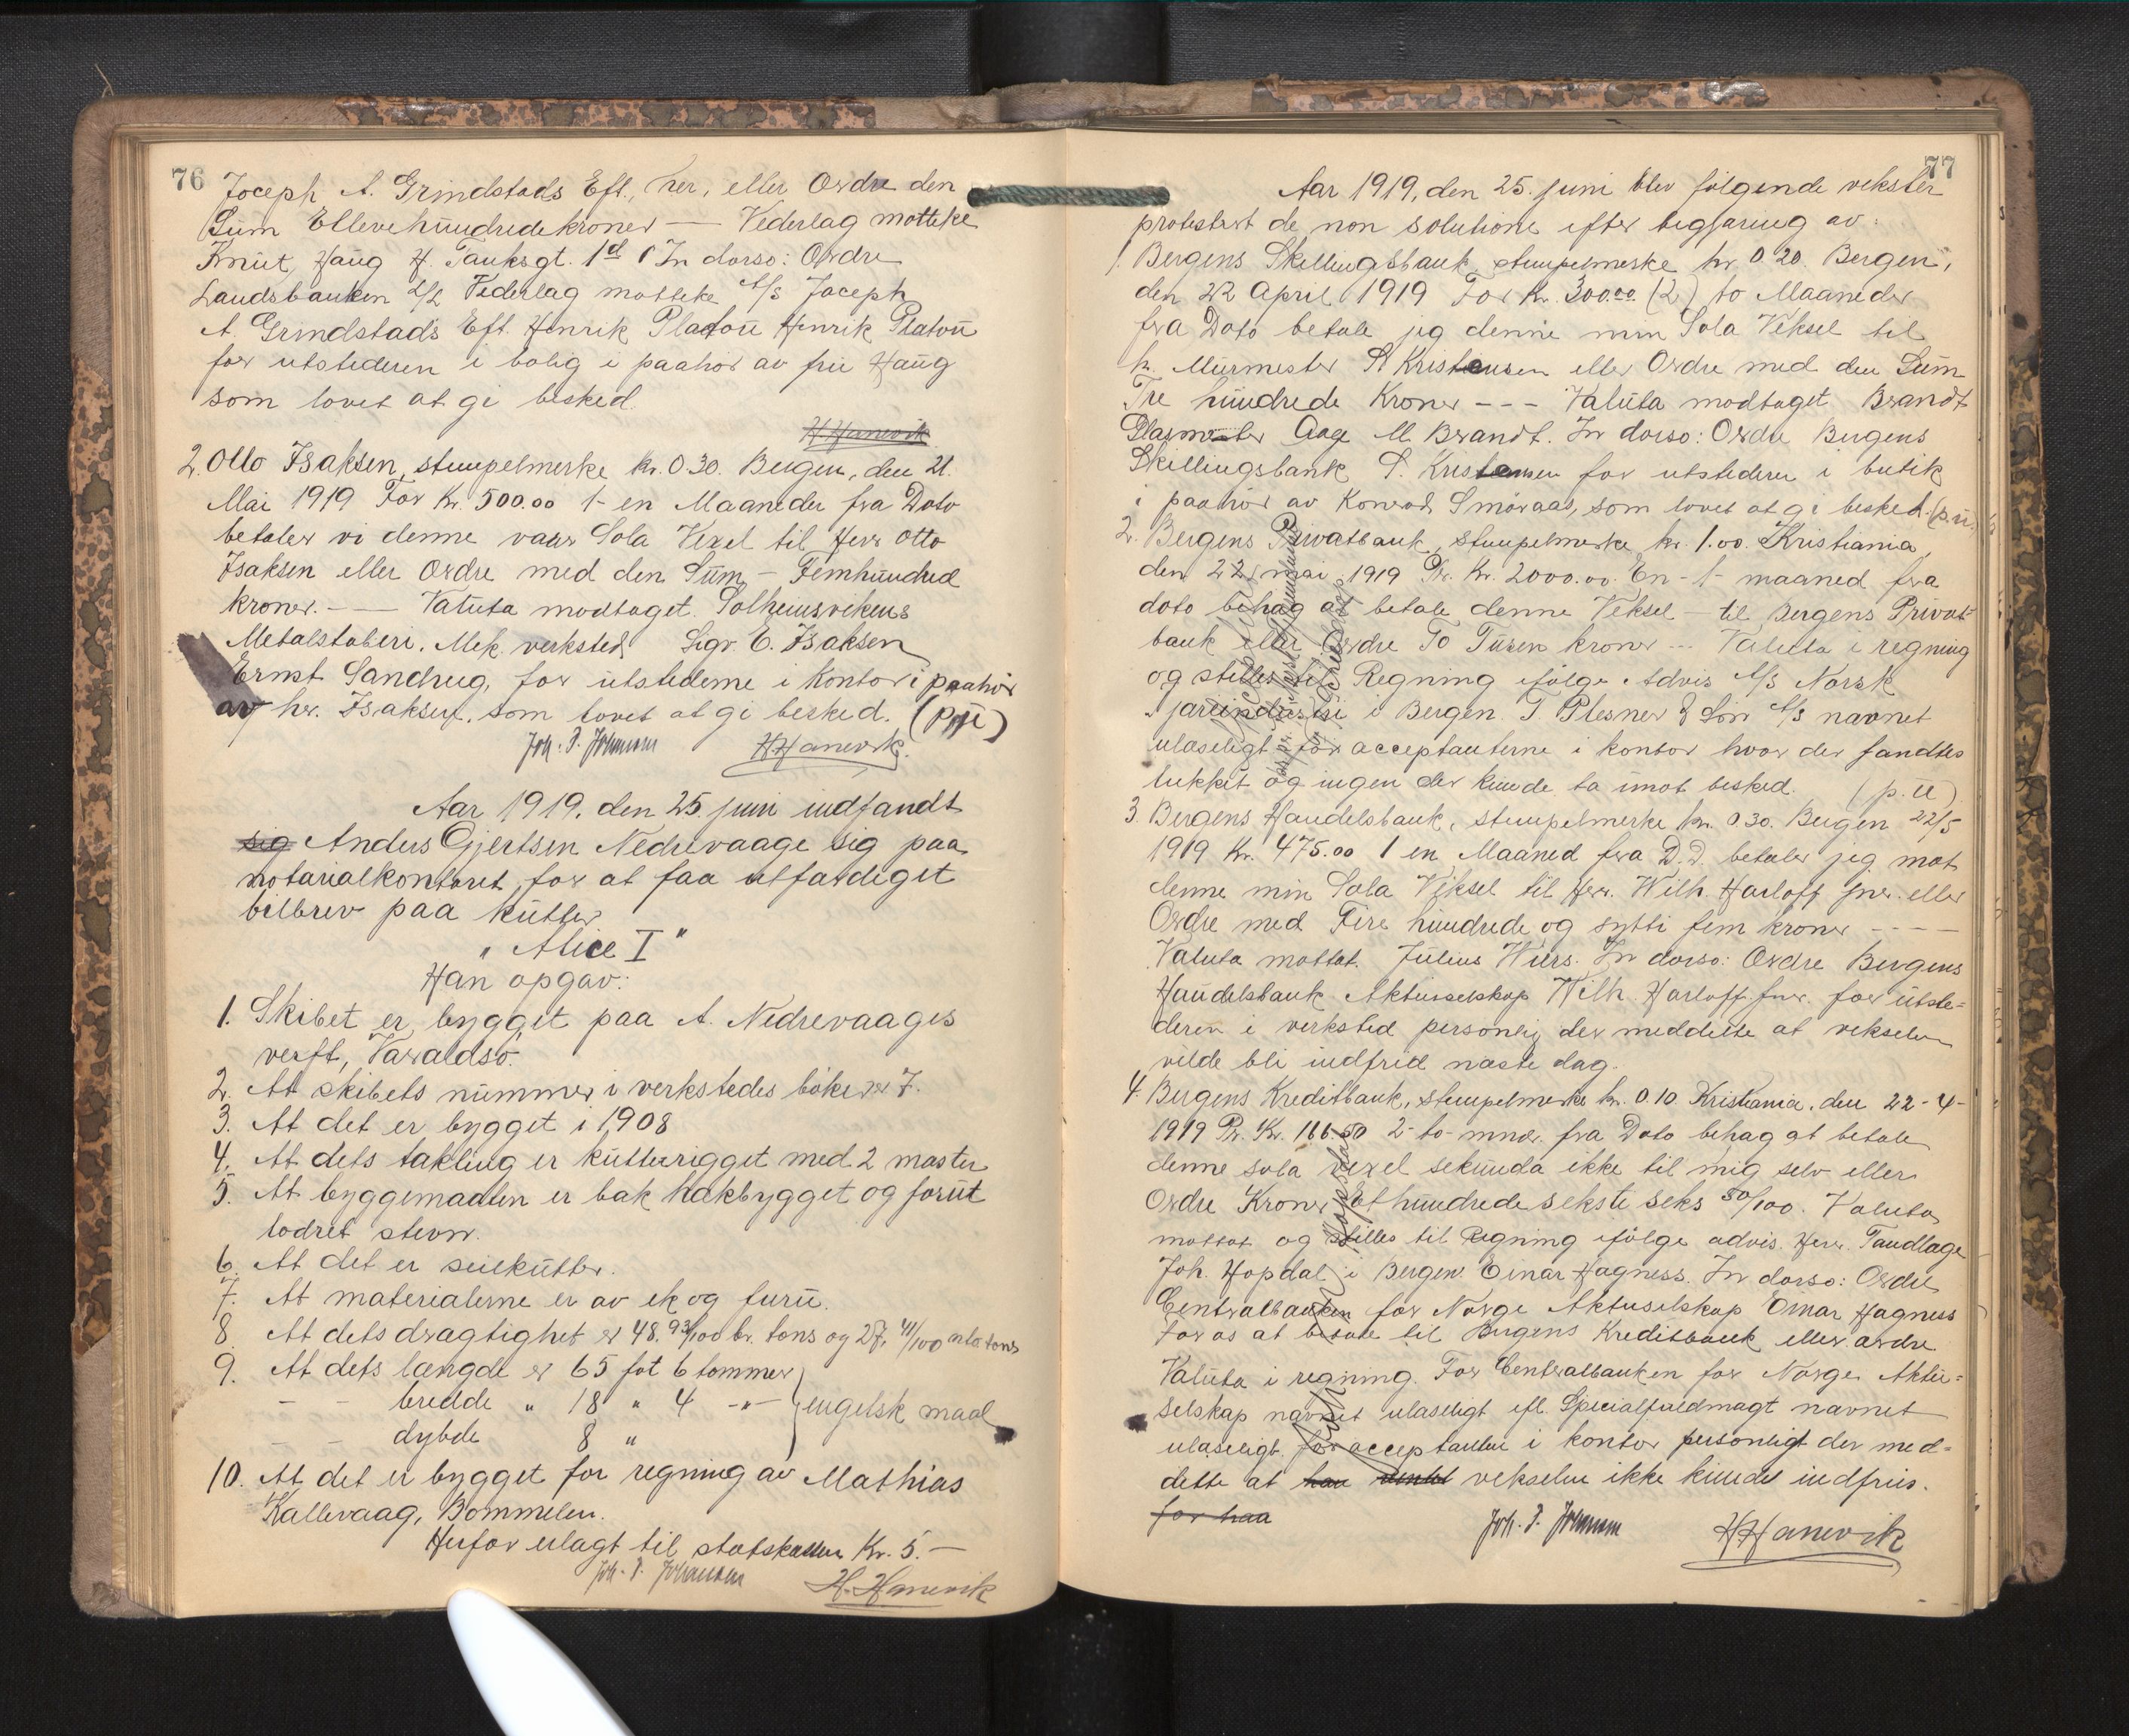 76
Joceph A. Grindstads Eft., her, eller Ordre den
Sum Ellevehundredekroner — Vederlag motteke
Knut Haug H. Tanksgt. 1d In dorso: Ordre
Landsbanken A/L Vederlag motteke A/S Joceph
A. Grindstads Eft. Henrik Platou Henrik Platou
for utstederen i bolig i paahør av fru Haug
som lovet at gi besked.
H Hanevik
2. Otto Isaksen, stempelmerke kr. 0.30. Bergen, den 21.
Mai 1919 For Kr. 500.00 1- en Maaneder fra Dato
betaler vi denne vaar Sola Vexel til Herr Otto
Isaksen eller Ordre med den Sum – Femhundred
kroner. — Valuta modtaget. Solheimsvikens
Metalstøberi. Mek. verksted Sigv. E. Isaksen
Ernst Sandrug, for utstederne i kontor i paahør
av hr. Isaksen, som lovet at gi besked. (p.u)
Joh. P. Johansen H Hanevik.
Aar 1919, den 25. juni indfandt
sig Anders Gjertsen Nedrevaage sig paa
notarialkontoret for at faa utfærdiget
bilbrev paa kutter
" Alice I "
Han opgav:
1. Skibet er bygget paa A. Nedrevaages
verft, Varaldsø.
2. At skibets nummer i verkstedes bøker er 7.
3. At det er bygget i 1908
4. At dets takling er kutterrigget med 2 master
5. At byggemaaten er bak hakbygget og forut
lodret stevn.
6. At det er seilkutter.
7. At materialerne er av ek og furu.
8. At dets drægtighet er 48.93/100 br. tons og 27.41/100 netto tons
9. At dets længde er 65 fot 6 tommer
— — bredde " 18 " 4 -"- } engelsk maal
— — dybde 8 "
10. At det er bygget for regning av Mathias
Kallevaag, Bømmelen.
Herfor erlagt til statskassen Kr. 5.—
Joh. P. Johansen H. Hanevik
77
Aar 1919, den 25. juni blev følgende veksler
protestert de non solutione efter begjæring av:
1. Bergens Skillingsbank, stempelmerke kr. 0.20. Bergen,
den 22 April 1919 For Kr. 300.00 (2) to Maaneder
fra Dato betale jeg denne min Sola Veksel til
hr. Murmester S. Kristensen eller Ordre med den Sum
Tre hundrede Kroner - - - Valuta modtaget Brandt
Glasmester Aage M. Brandt. In dorso: Ordre Bergens
Skillingsbank S. Kristensen for utstederen i butik
i paahør av Konrad Smøraas, som lovet at gi besked. (p.u)
2. Bergens Privatbank, stempelmerke kr. 1.00. Kristiania,
den 22. mai 1919 Pr. Kr. 2000.00. En -1- maaned fra
dato behag at betale denne Veksel — til Bergens Privat-
bank eller Ordre To Tusen kroner ... Valuta i regning
og stilles til Regning ifølge Advis A/S Norsk
i Bergen. T. Plesner & Søn A/S navnet
ulæseligt for acceptanterne i kontor hvor der fandtes
lukket og ingen der kunde ta imot besked. (p.u)
3. Bergens Handelsbank, stempelmerke kr. 0.30. Bergen 22/5
1919 Kr. 475.00 1 en Maaned fra D.D. betaler jeg mot
denne min Sola Veksel til Herr. Wilh. Harloff jnr. eller
Ordre med Fire hundrede og sytti fem kroner - - - -
Valuta mottat. Julius Wiers. In dorso: Ordre Bergens
Handelsbank Aktieselskap Wilh. Harloff jnr. for utste=
deren i verksted personlig der meddelte at vekselen
vilde bli indfriet næste dag.
4. Bergens Kreditbank, stempelmerke kr. 0.10 Kristiania, den 22-4-
1919 Pr. Kr. 166.50 2- to- mndr. fra Dato behag at betale
denne sola vexel sekunda ikke til mig selv eller
Ordre Kroner Et hundrede seksti seks 50/100. Valuta
mottat og stilles til Regning ifølge advis. Herr. Tandlæge
Joh. Hopdal i Bergen Einar Hagness. In dorso: Ordre
Centralbanken for Norge Aktieselskap Einar Hagness
For os at betale til Bergens Kreditbank eller ordre
Valuta i regning. For Centralbanken for Norge Aktie=
selskap navnet ulæseligt efl. Specialfuldmagt navnet
ulæseligt for acceptanten i kontor personligt der med=
delte at han vekselen ikke kunde indfries.
for haa
Joh. P. Johansen H Hanevik